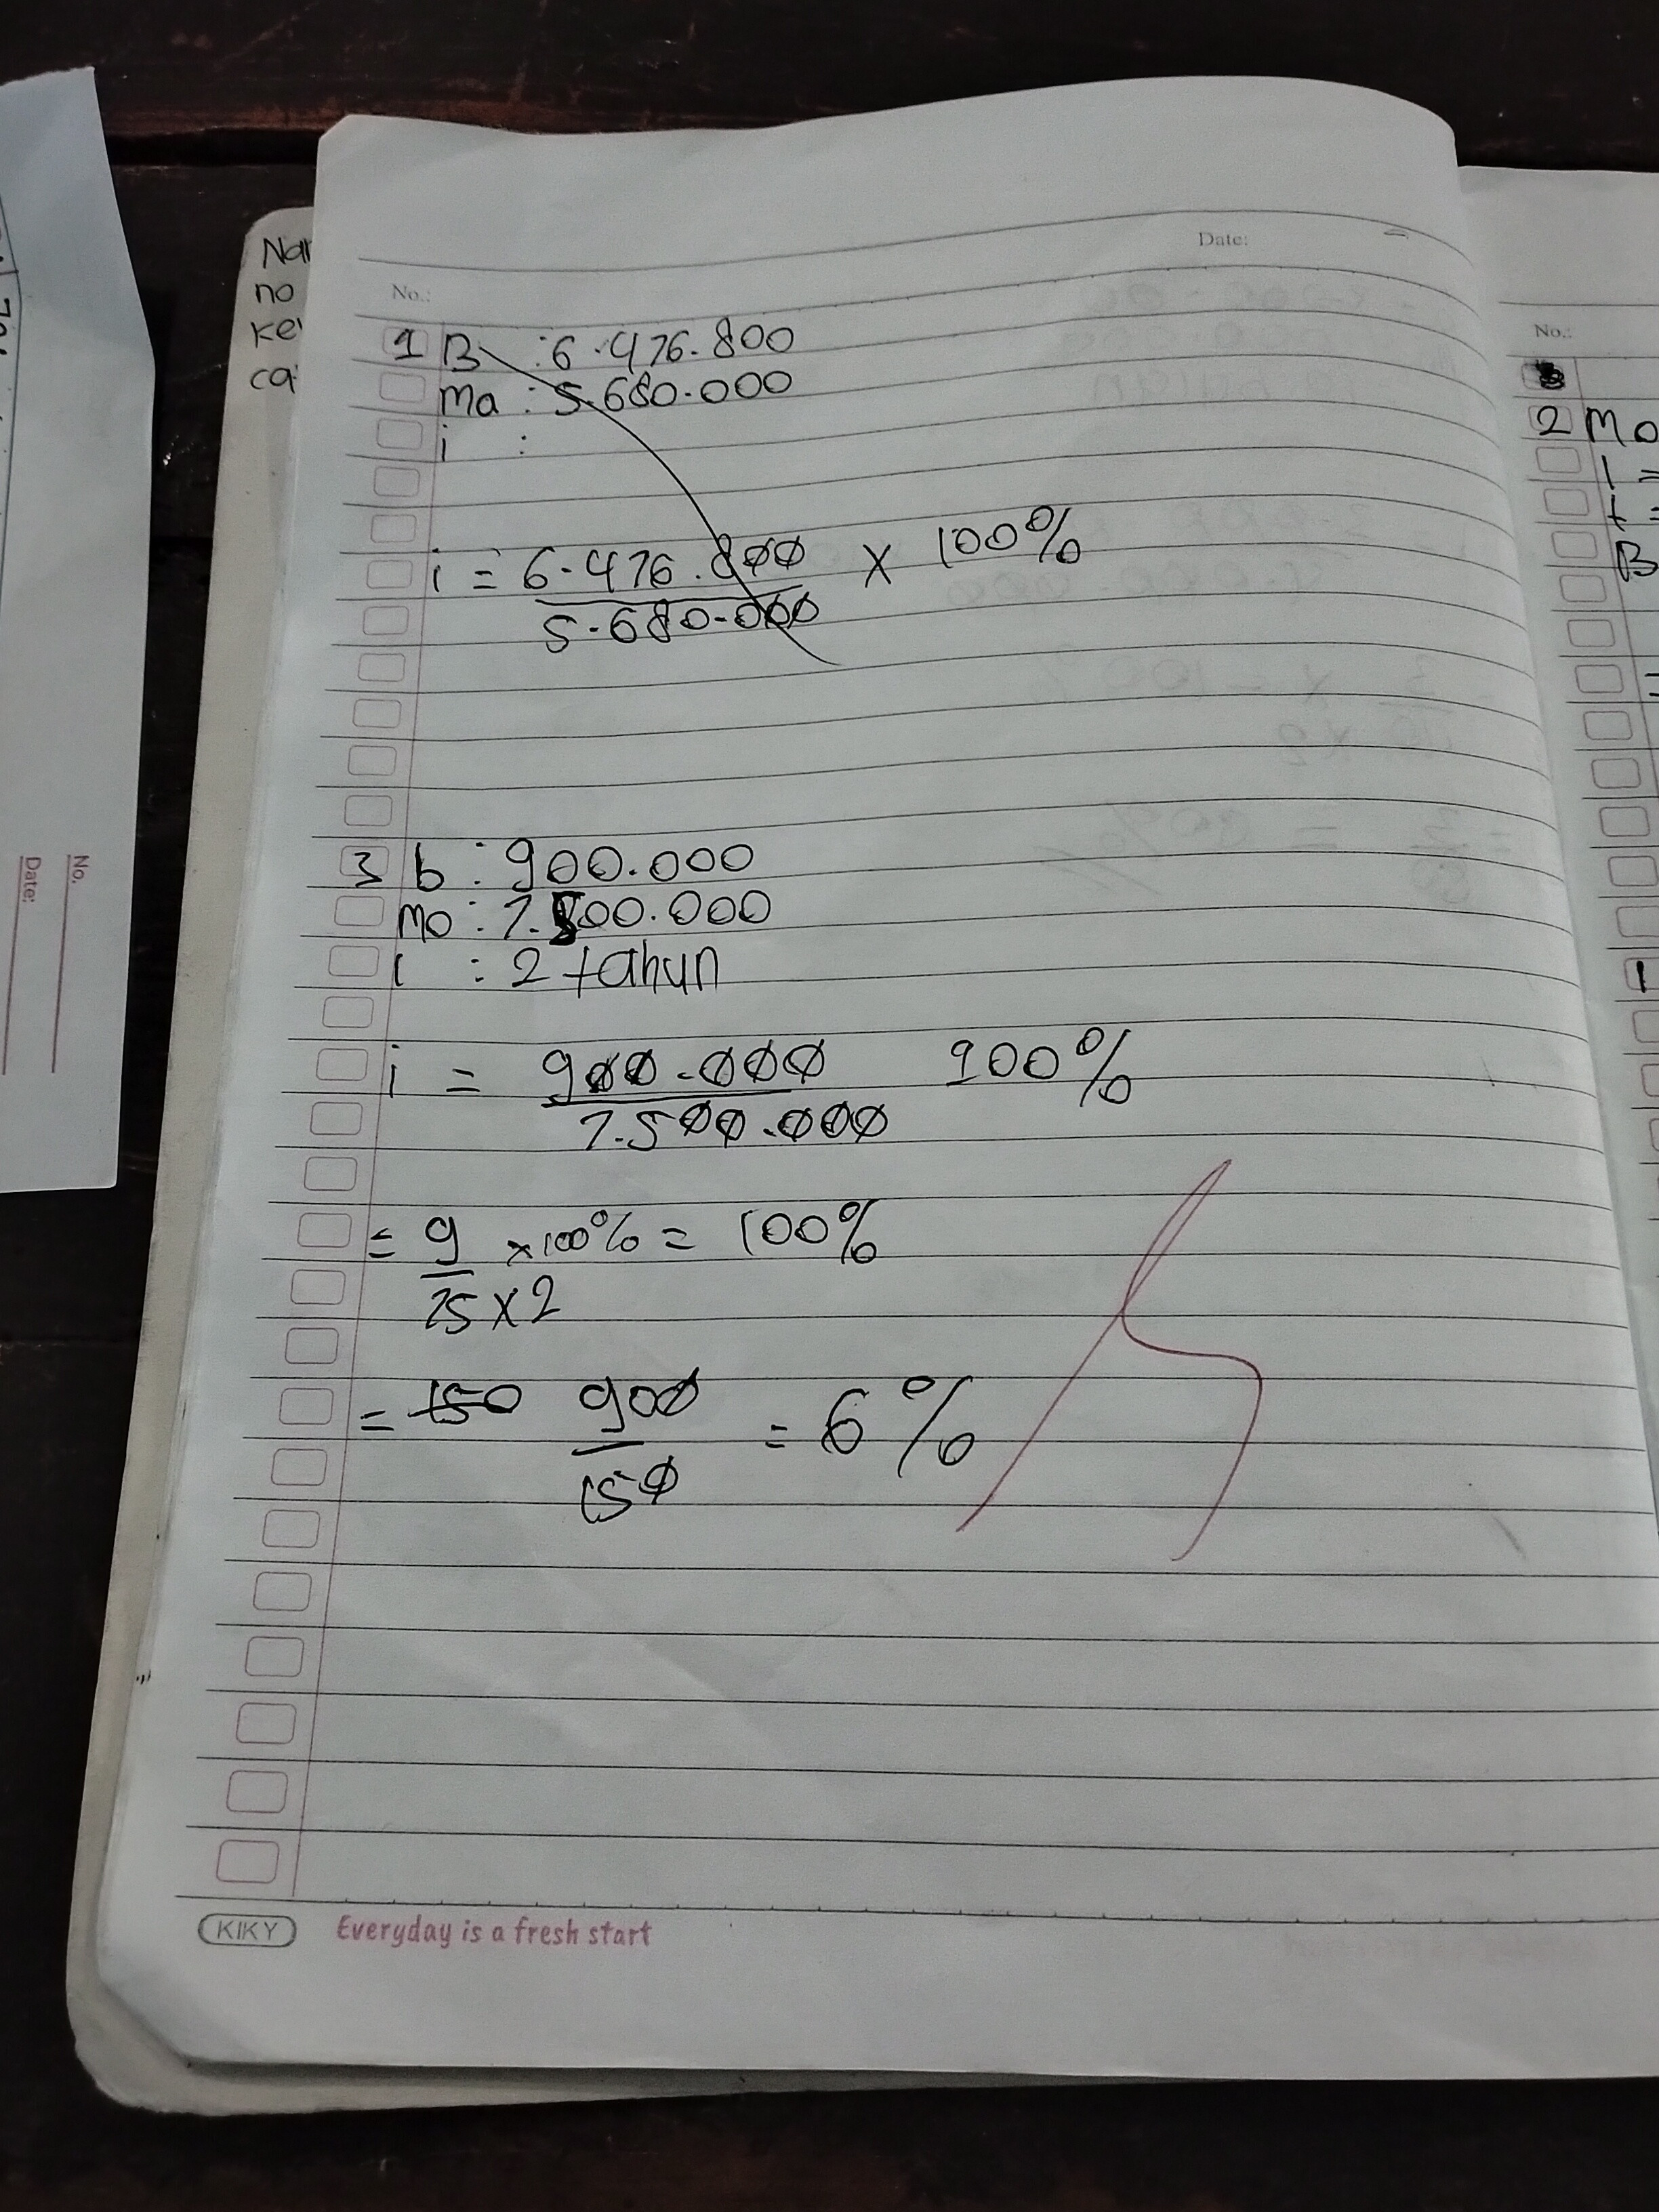 Date:
No.:
1 B : 6.476.800
Ma : 5.680.000
i :
i = 6.476.800 x 100%
5.680.000
3 b : 900.000
Mo : 7.500.000
i : 2 tahun
i = 900.000 100%
7.500.000
= 9 x100% = 100%
75 x 2
= 150 900 = 6%
150
KIKY Everyday is a fresh start
No.:
2 Mo
I =
t =
B
1
no
ca
No.
Date: